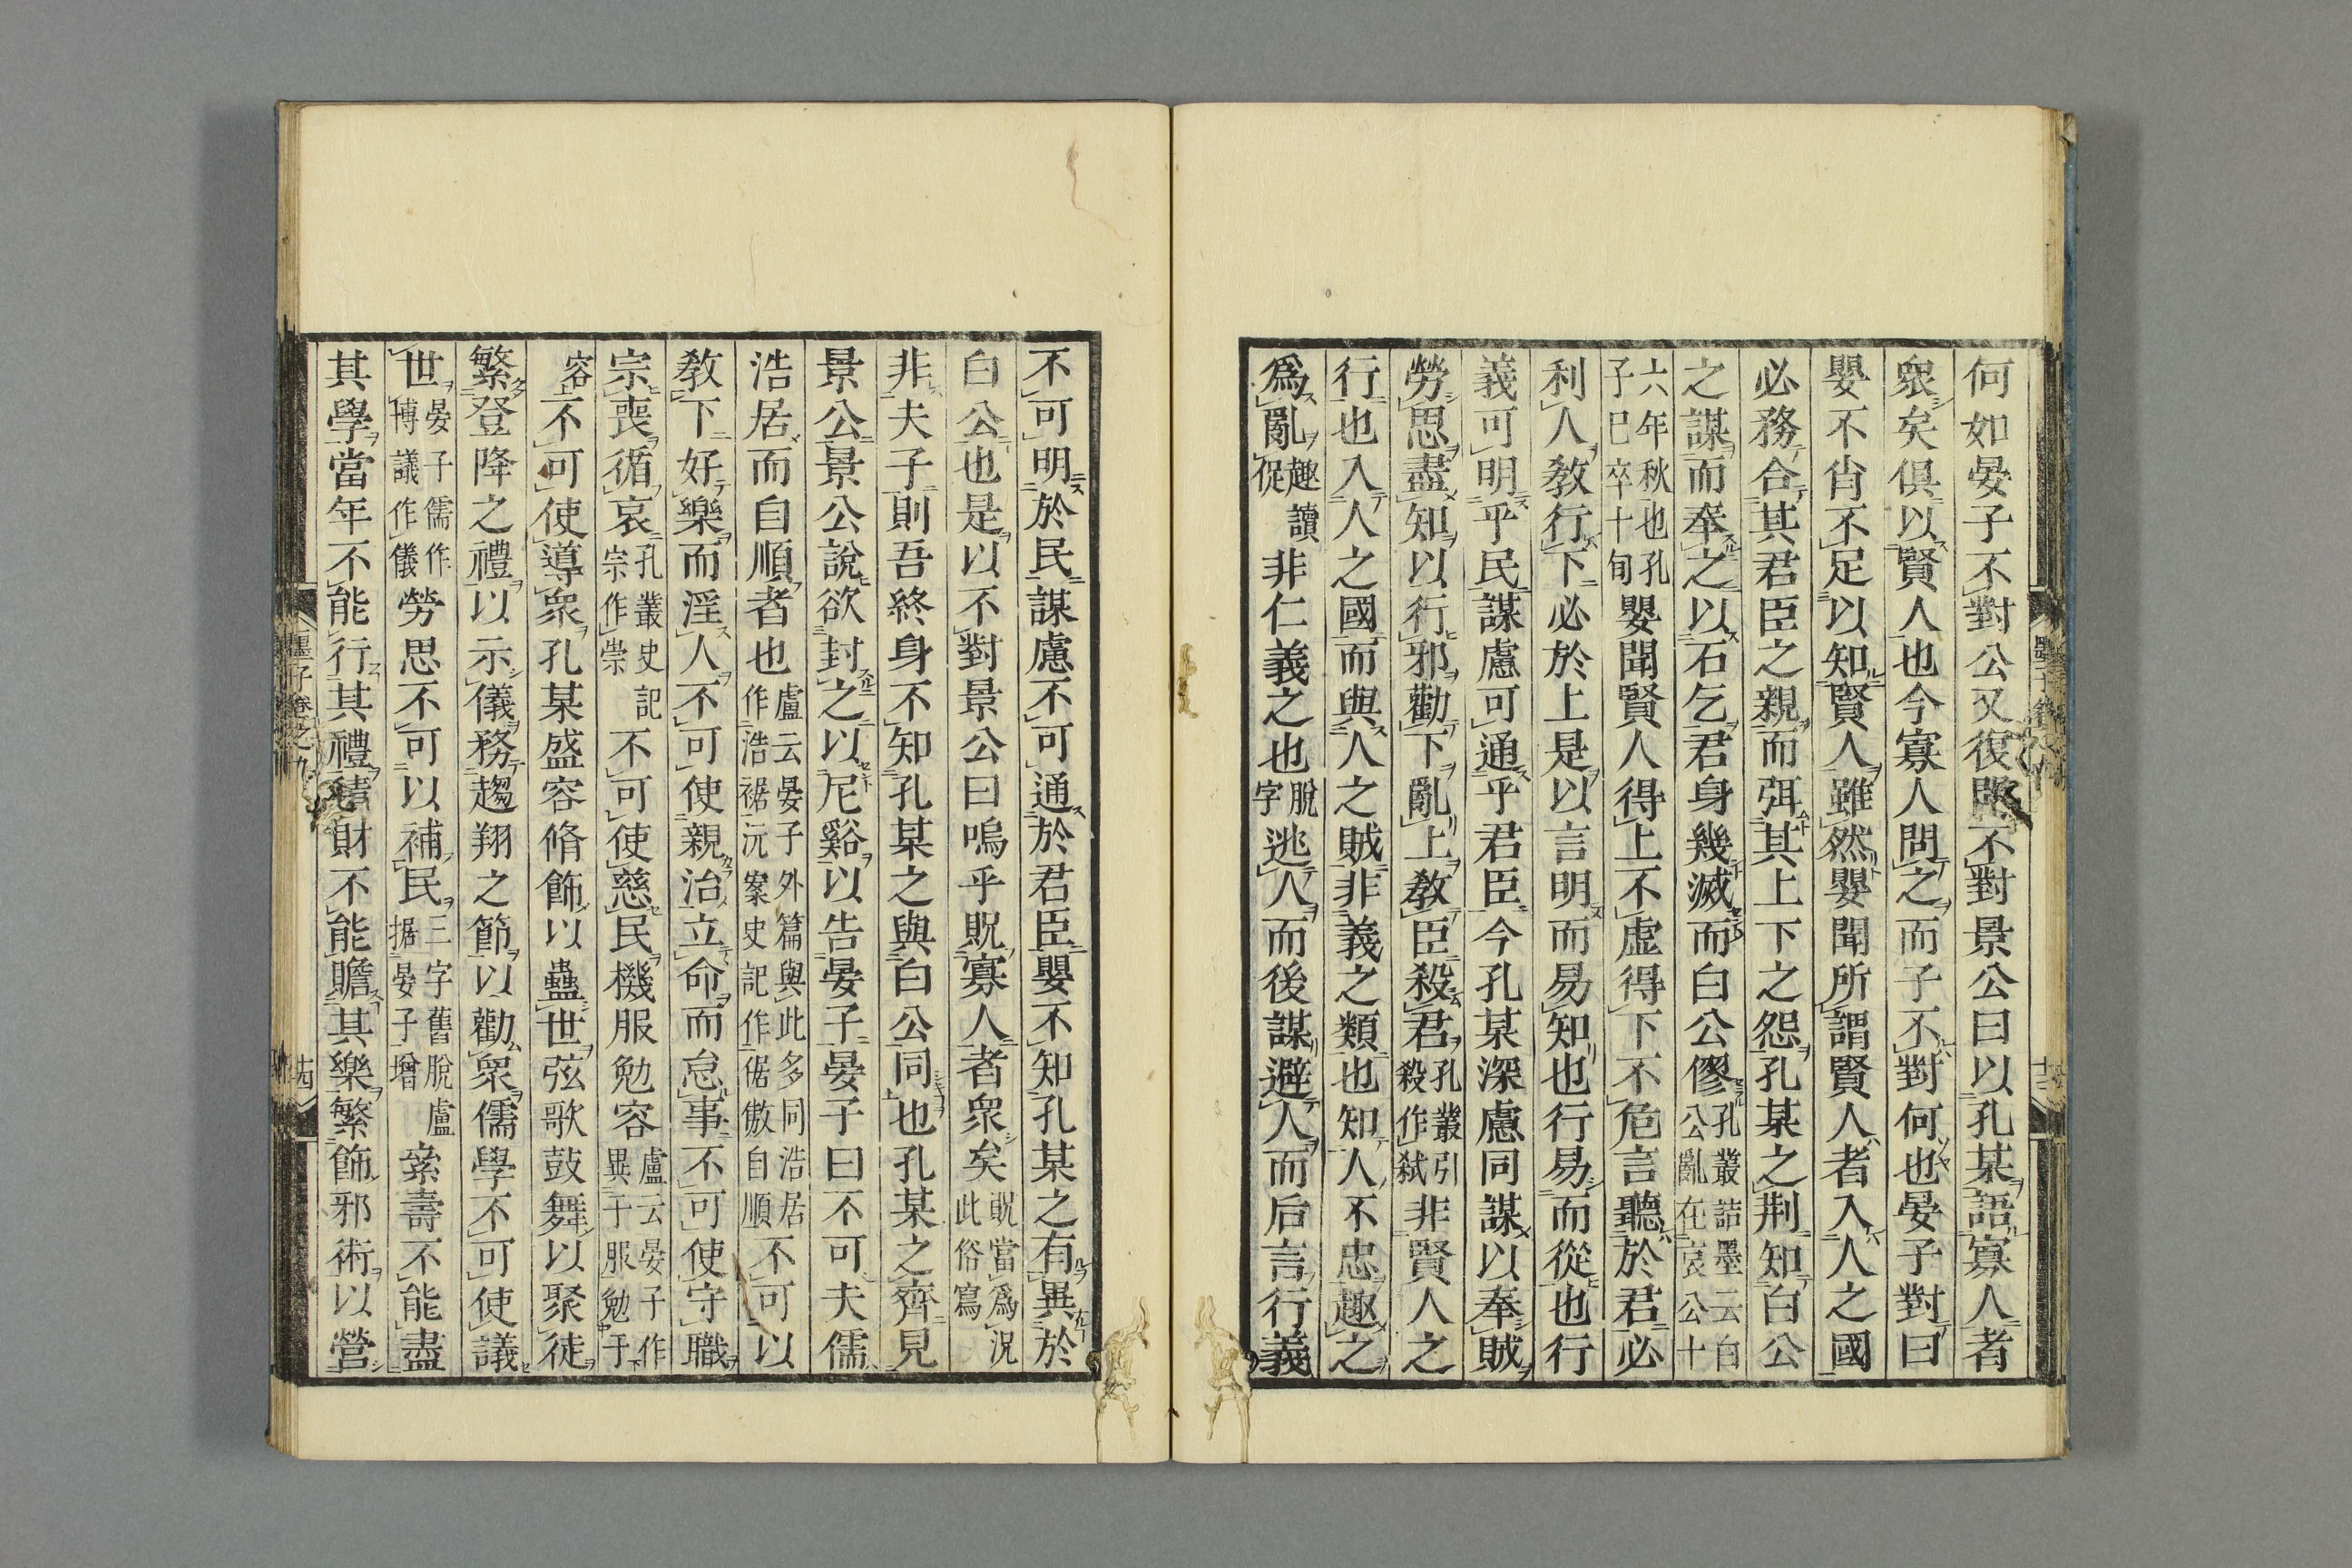 何如晏子不對公又復問不對景公曰以孔某語寡人者
衆矣俱以賢人也今寡人問之而子不對何也晏子對曰
嬰不肖不足以知賢人雖然嬰聞所謂賢人者入人之國
必務合其君臣之親而弭其上下之怨孔某之荆知白公
之謀而奉之以石乞君身幾滅而白公僇孔叢詰墨云白公亂在哀公十
六年秋也孔子巳卒十旬嬰聞賢人得上不虛得下不危言聽於君必
利人教行下必於上是以言明而易知也行易而從也行
義可明乎民謀慮可通乎君臣今孔某深慮同謀以奉賊
勞思盡知以行邪勸下亂上教臣殺君孔叢引殺作弑非賢人之
行也入人之國而與人之賊非義之類也知人不忠趣之
爲亂趣讀促非仁義之也脫字逃人而後謀避人而后言行義
不可明於民謀慮不可通於君臣嬰不知孔某之有異於
白公也是以不對景公曰嗚乎貺寡人者衆矣貺當爲況此俗寫
非夫子則吾終身不知孔某之與白公同也孔某之齊見
景公景公說欲封之以尼谿以告晏子晏子曰不可夫儒
浩居而自順者也盧云晏子外篇與此多同浩居作浩裾沅案史記作倨傲自順不可以
教下好樂而淫人不可使親治立命而怠事不可使守職
宗喪循哀孔叢史記宗作崇不可使慈民機服勉容盧云晏子作異于服勉于
容不可使導衆孔某盛容脩飾以蠱世弦歌鼓舞以聚徒
繁登降之禮以示儀務趨翔之節以勸衆儒學不可使議
世晏子儒作博議作儀勞思不可以補民三字舊脫盧据晏子增絫壽不能盡
其學當年不能行其禮積財不能贍其樂繁飾邪術以營
墨子卷之九
十四